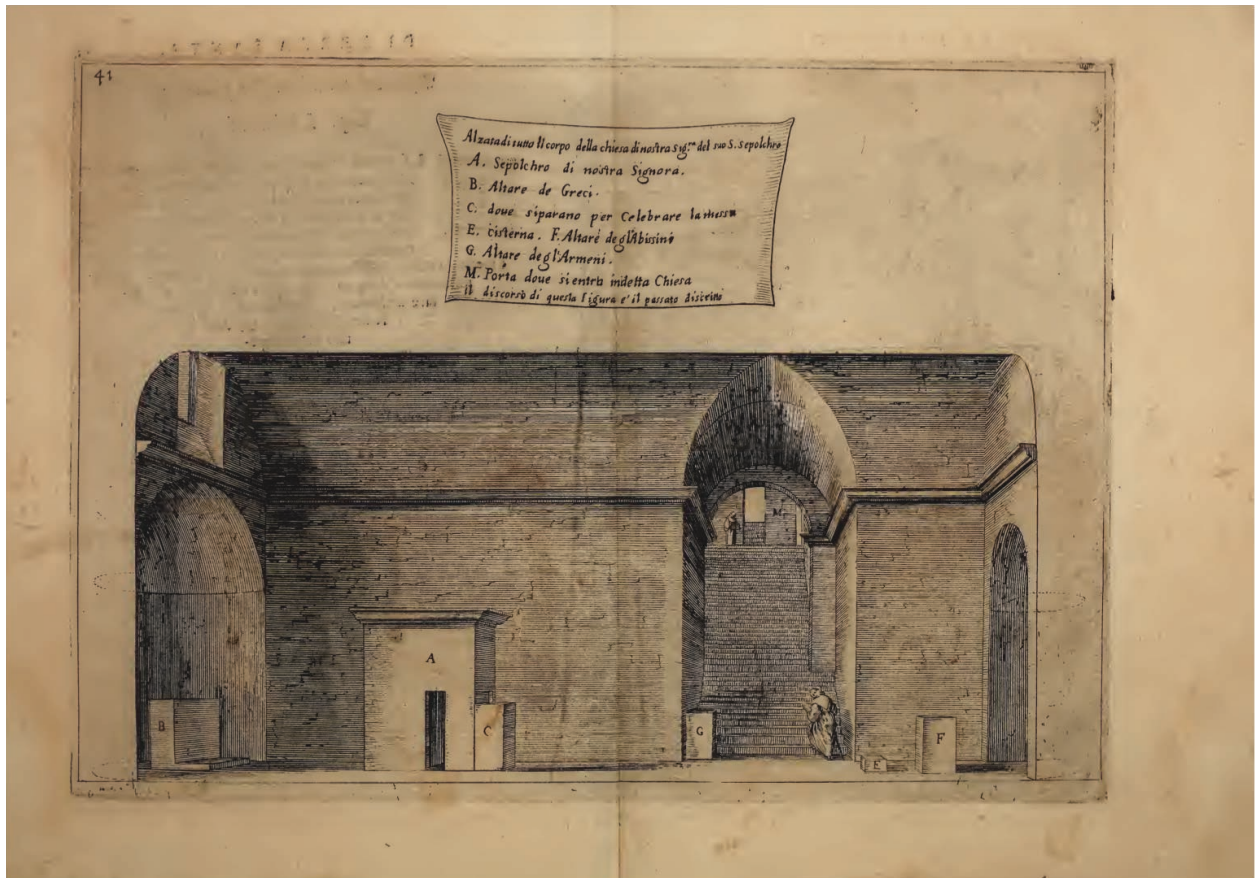 41
Alzata di tutto Il corpo della chiesa di nostra Sig.ra del suo S. Sepolchro
A. Sepolchro di nostra Signora.
B. Altare de Greci.
C. doue siparano per Celebrare la messa
E. cisterna. F. Altare degl'Abisini
G. Altare degl'Armeni.
M. Porta doue sientra indetta Chiesa
Il discorso di questa figura e' il passato
M
A
B
C
G
E
F